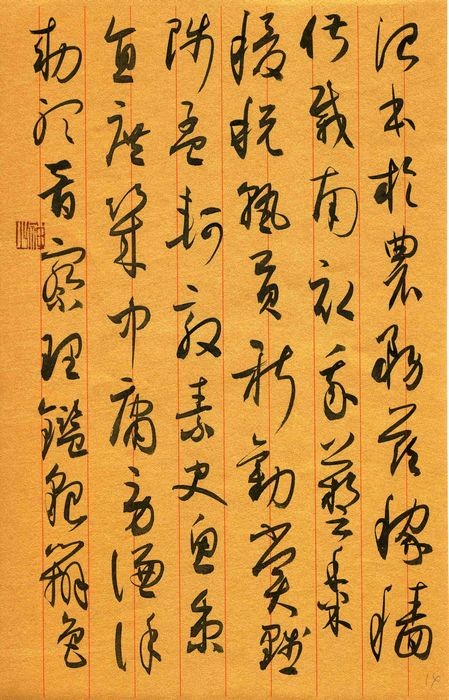 治本於農務茲稼穡
俶載南畝我藝黍
稷稅熟貢新勸賞黜
陟孟軻敦素史魚秉
直庶幾中庸勞謙謹
勅聆音察理鑑貌辨色
14